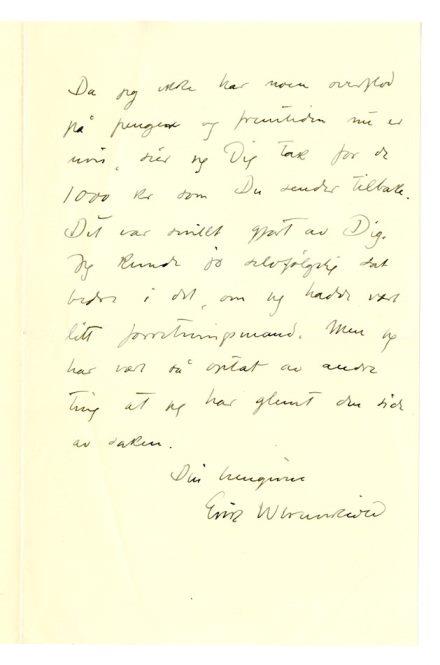 Da jeg ikke har noen overflod
på penger og fremtiden nu er
uvis, sier jeg Dig tak for de
1000 kr som Du sender tilbake.
Det var snillt gjort av Dig.
Jeg kunde jo selvfølgelig sat
bedre i det, om jeg hadde vært
litt forretningsmand. Men jeg
har vært så optat av andre
ting at jeg har glemt den side
av saken.
Din hengivne
Erik Werenskiold